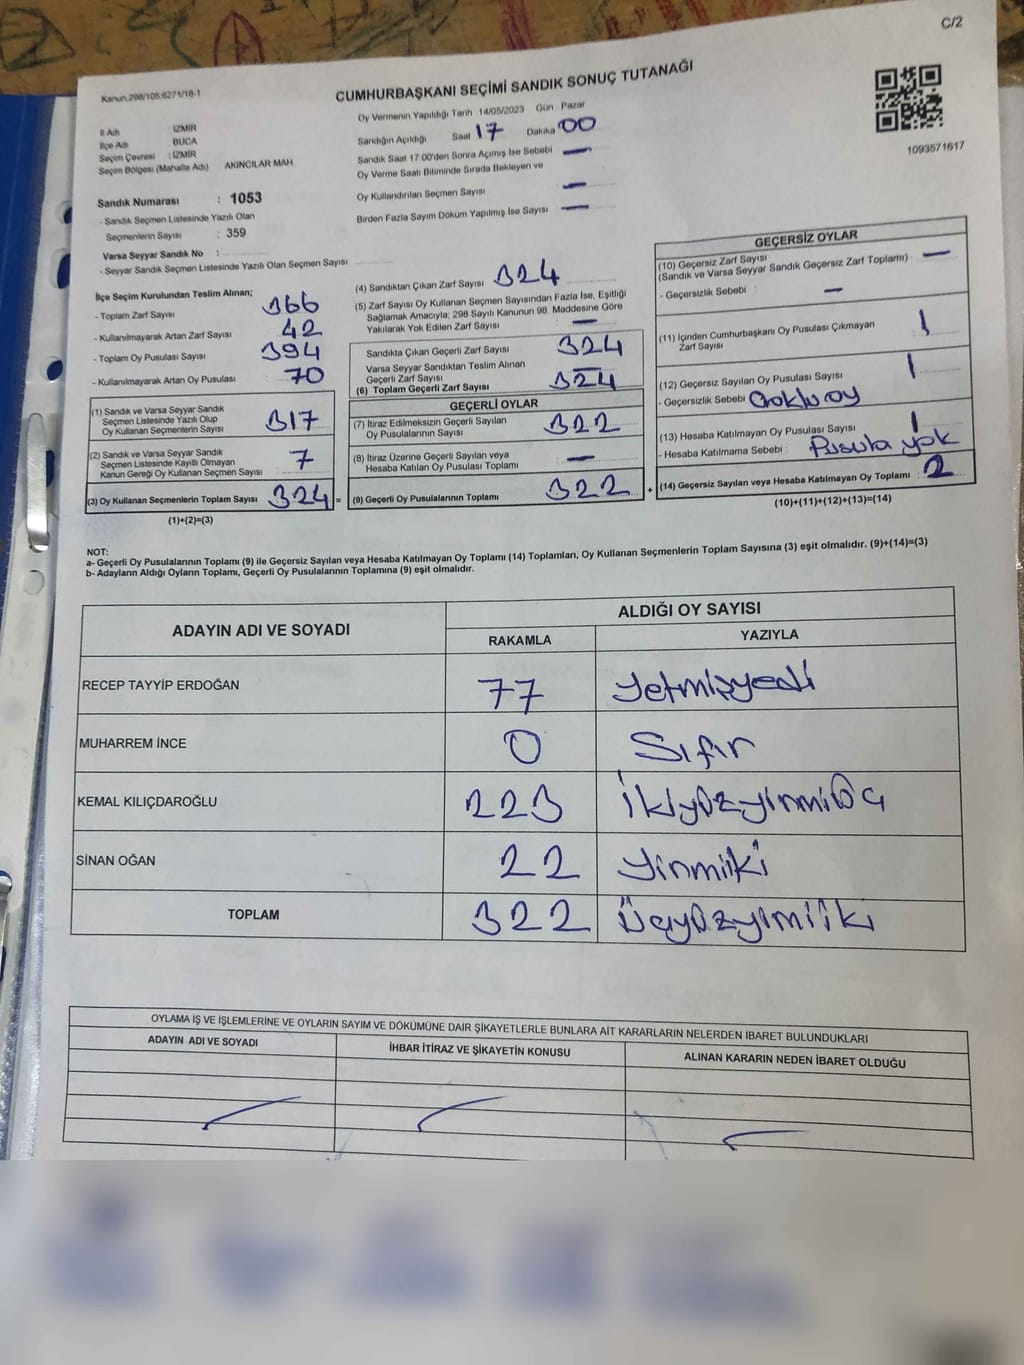 C/2
Kanun:298/105;6271/18-1
CUMHURBAŞKANI SEÇİMİ SANDIK SONUÇ TUTANAĞI
İl Adı İZMİR
İlçe Adı BUCA
Seçim Çevresi : İZMİR
Seçim Bölgesi (Mahalle Adı) AKINCILAR MAH.
Sandık Numarası : 1053
- Sandık Seçmen Listesinde Yazılı Olan
Seçmenlerin Sayısı : 359
Varsa Seyyar Sandık No :
- Seyyar Sandık Seçmen Listesinde Yazılı Olan Seçmen Sayısı
Oy Vermenin Yapıldığı Tarih 14/05/2023 Gün Pazar
Sandığın Açıldığı Saat 17 Dakika 00
Sandık Saat 17.00'den Sonra Açılmış İse Sebebi —
Oy Verme Saati Bitiminde Sırada Bekleyen ve
Oy Kullandırılan Seçmen Sayısı —
Birden Fazla Sayım Döküm Yapılmış İse Sayısı —
1093571617
İlçe Seçim Kurulundan Teslim Alınan;
- Toplam Zarf Sayısı 366
- Kullanılmayarak Artan Zarf Sayısı : 42
- Toplam Oy Pusulası Sayısı 394
- Kullanılmayarak Artan Oy Pusulası : 70
(1) Sandık ve Varsa Seyyar Sandık
Seçmen Listesinde Yazılı Olup
Oy Kullanan Seçmenlerin Sayısı 317
(2) Sandık ve Varsa Seyyar Sandık
Seçmen Listesinde Kayıtlı Olmayan
Kanun Gereği Oy Kullanan Seçmen Sayısı 7
(3) Oy Kullanan Seçmenlerin Toplam Sayısı 324 =
(1)+(2)=(3)
(4) Sandıktan Çıkan Zarf Sayısı 324
(5) Zarf Sayısı Oy Kullanan Seçmen Sayısından Fazla İse, Eşitliği
Sağlamak Amacıyla; 298 Sayılı Kanunun 98. Maddesine Göre
Yakılarak Yok Edilen Zarf Sayısı —
Sandıkta Çıkan Geçerli Zarf Sayısı 324
Varsa Seyyar Sandıktan Teslim Alınan
Geçerli Zarf Sayısı —
(6) Toplam Geçerli Zarf Sayısı 324
GEÇERLİ OYLAR
(7) İtiraz Edilmeksizin Geçerli Sayılan
Oy Pusulalarının Sayısı 322
(8) İtiraz Üzerine Geçerli Sayılan veya
Hesaba Katılan Oy Pusulası Toplamı —
(9) Geçerli Oy Pusulalarının Toplamı 322 +
GEÇERSİZ OYLAR
(10) Geçersiz Zarf Sayısı
(Sandık ve Varsa Seyyar Sandık Geçersiz Zarf Toplamı) —
- Geçersizlik Sebebi : —
(11) İçinden Cumhurbaşkanı Oy Pusulası Çıkmayan
Zarf Sayısı 1
(12) Geçersiz Sayılan Oy Pusulası Sayısı 1
- Geçersizlik Sebebi Çoklu oy
(13) Hesaba Katılmayan Oy Pusulası Sayısı 1
- Hesaba Katılmama Sebebi : Pusula yok
(14) Geçersiz Sayılan veya Hesaba Katılmayan Oy Toplamı : 2
(10)+(11)+(12)+(13)=(14)
NOT:
a- Geçerli Oy Pusulalarının Toplamı (9) ile Geçersiz Sayılan veya Hesaba Katılmayan Oy Toplamı (14) Toplamları, Oy Kullanan Seçmenlerin Toplam Sayısına (3) eşit olmalıdır. (9)+(14)=(3)
b- Adayların Aldığı Oyların Toplamı, Geçerli Oy Pusulalarının Toplamına (9) eşit olmalıdır.
ADAYIN ADI VE SOYADI ALDIĞI OY SAYISI
RAKAMLA YAZIYLA
RECEP TAYYİP ERDOĞAN 77 Yetmişyedi
MUHARREM İNCE 0 Sıfır
KEMAL KILIÇDAROĞLU 223 İkiyüzyirmiüç
SİNAN OĞAN 22 Yirmiiki
TOPLAM 322 Üçyüzyirmiiki
OYLAMA İŞ VE İŞLEMLERİNE VE OYLARIN SAYIM VE DÖKÜMÜNE DAİR ŞİKAYETLERLE BUNLARA AİT KARARLARIN NELERDEN İBARET BULUNDUKLARI
ADAYIN ADI VE SOYADI İHBAR İTİRAZ VE ŞİKAYETİN KONUSU ALINAN KARARIN NEDEN İBARET OLDUĞU